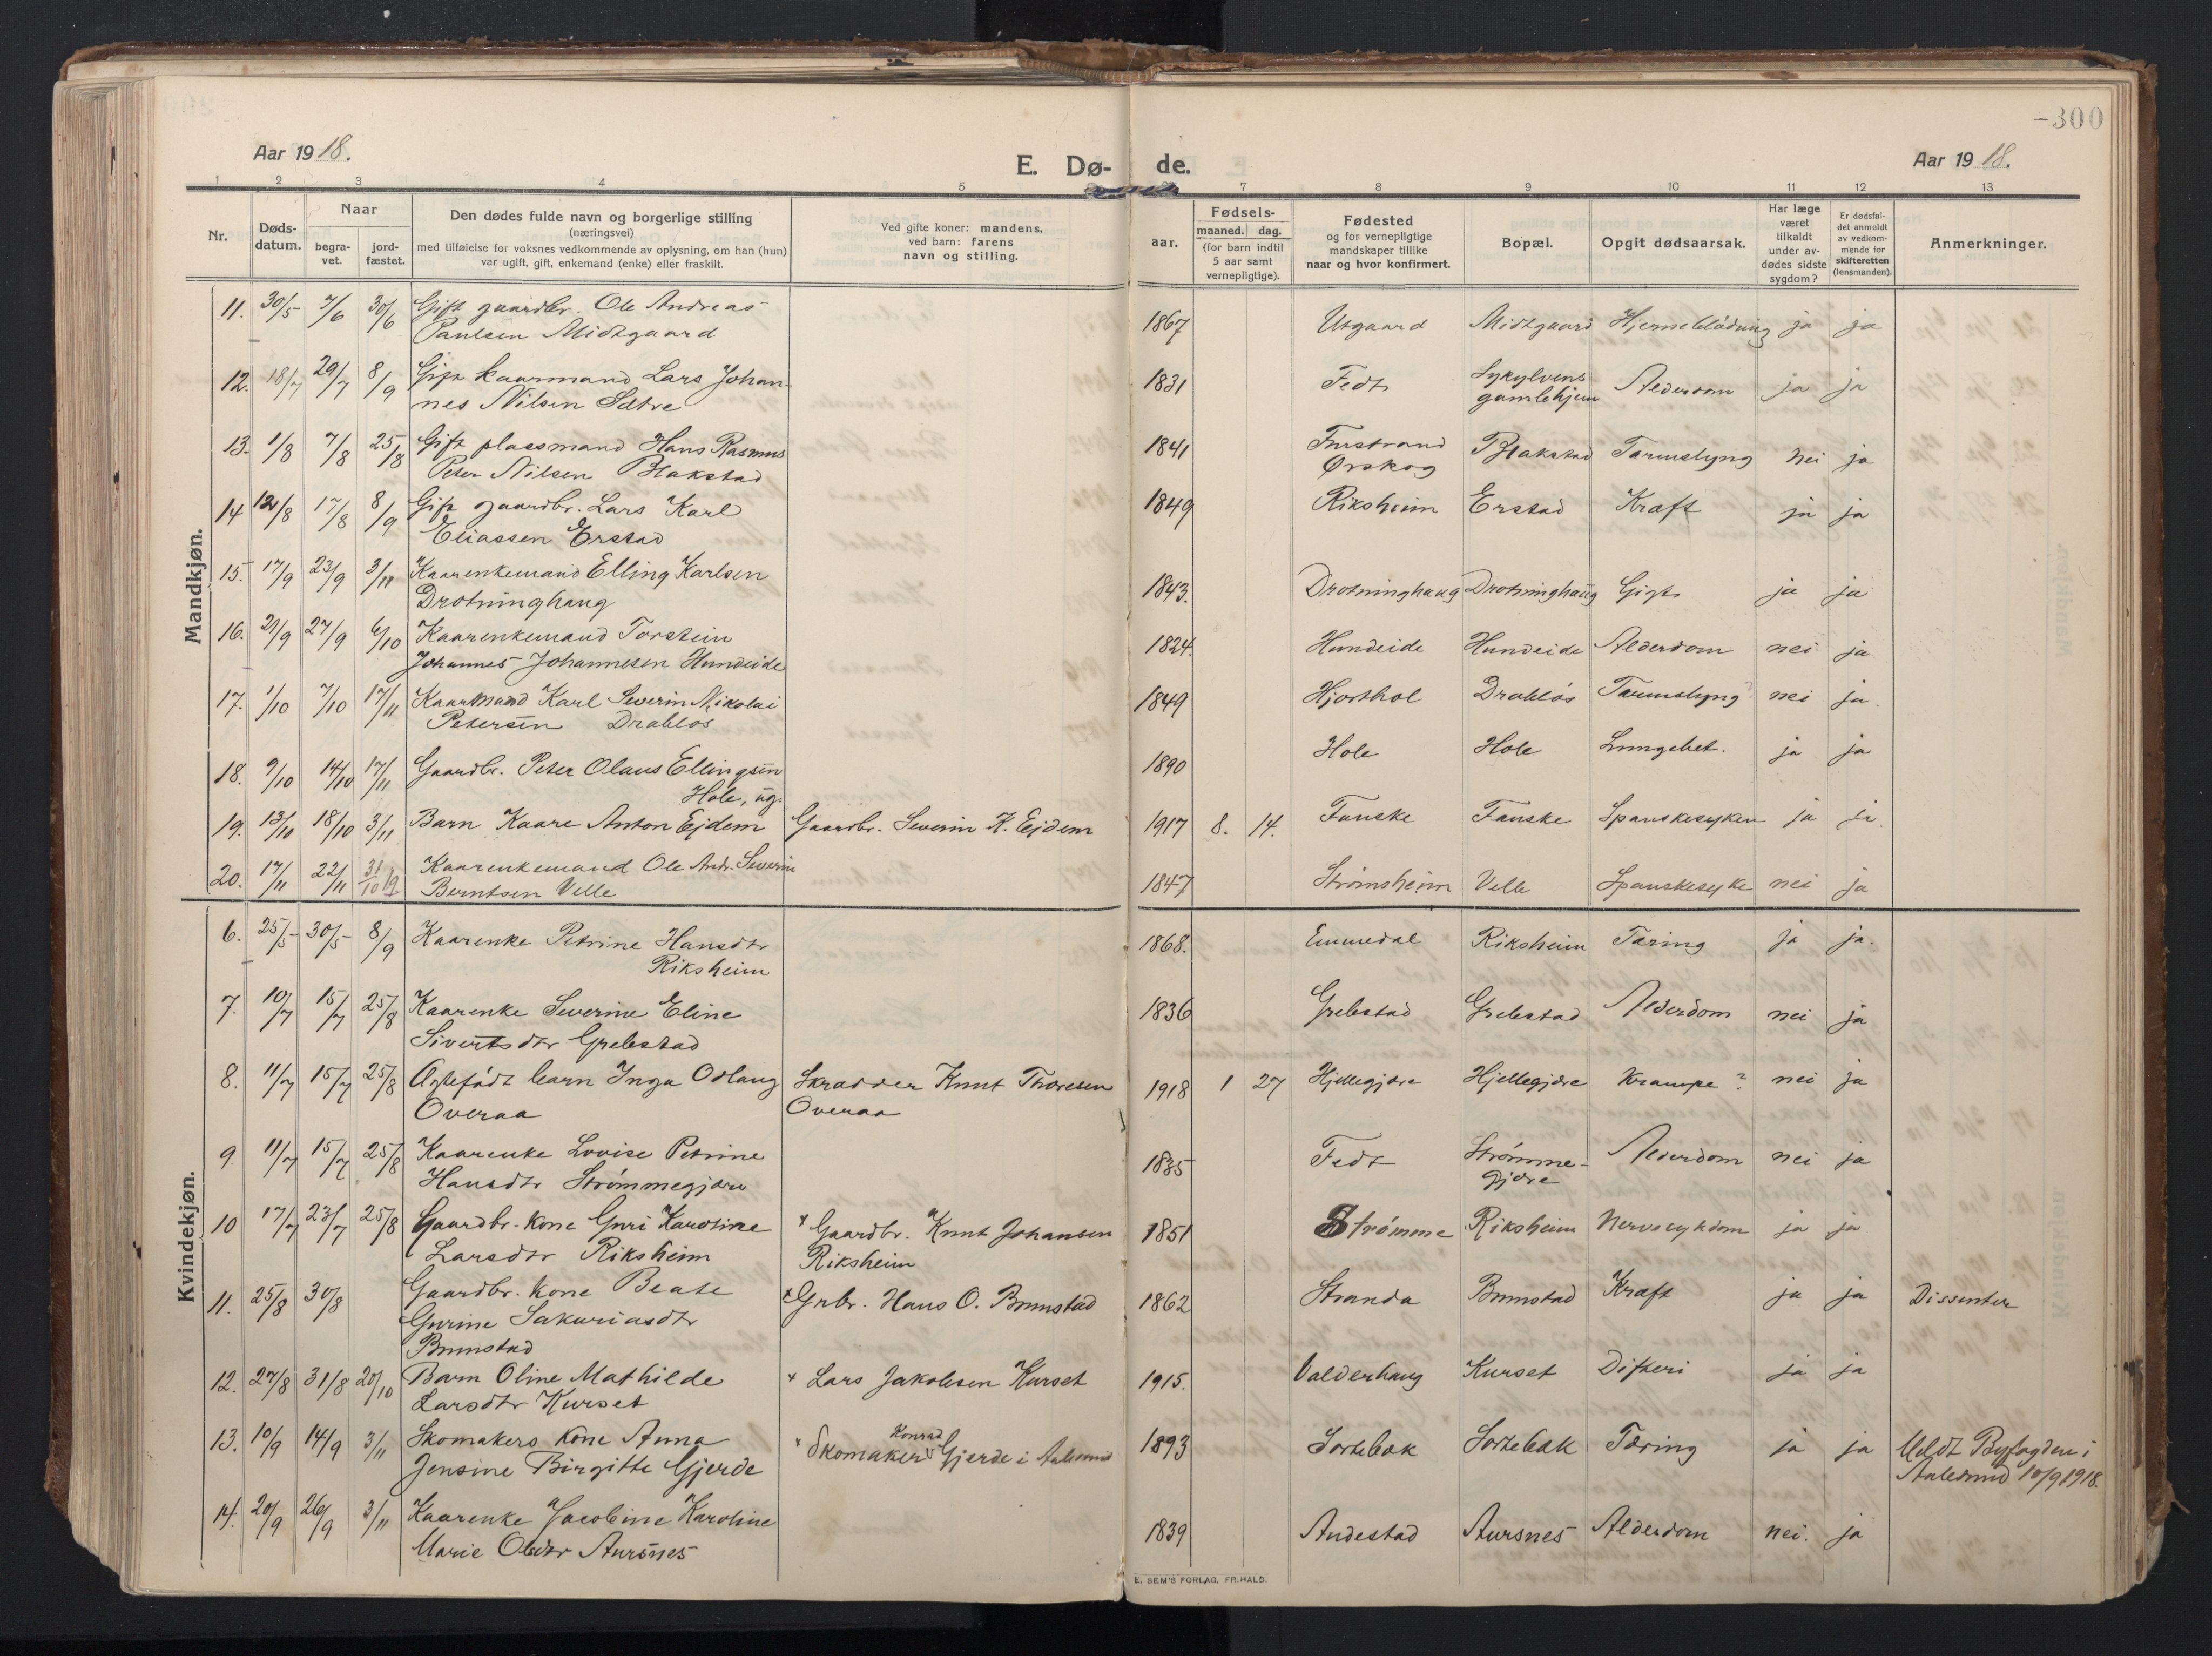 -300
Aar 1918.
E. Dø- de.
Aar 1918.
1 2 3 4 5 7 8 9 10 11 12 13
Nr.
Døds-
datum.
Naar
begra-
vet.
jord-
fæstet.
Den dødes fulde navn og borgerlige stilling
(næringsvei)
med tilføielse for voksnes vedkommende av oplysning, om han (hun)
var ugift, gift, enkemand (enke) eller fraskilt.
Ved gifte koner: mandens,
ved barn: farens
navn og stilling.
Fødsels-
aar.
maaned. dag.
(for barn indtil
5 aar samt
vernepligtige).
Fødested
og for vernepligtige
mandskaper tillike
naar og hvor konfirmert.
Bopæl.
Opgit dødsaarsak.
Har læge
været
tilkaldt
under av-
dødes sidste
sygdom?
Er dødsfal-
det anmeldt
av vedkom-
mende for
skifteretten
(lensmanden).
Anmerkninger.
Mandkjøn.
11. 30/5 7/6 30/6 Gift gaardbr. Ole Andreas 1867 Utgaard Midtgaard Hjerneblødning ja ja
Paulsen Midtgaard
12. 18/7 29/7 8/9 Gift kaarmand Lars Johan- 1831 Fedt Sykylvens Alderdom ja ja
nes Nilsen Sætre gamlehjem
13. 1/8 7/8 25/8 Gift plassmand Hans Rasmus 1841 Furstrand Blakstad Tarmslyng nei ja
Peter Nilsen Blakstad Ørskog
14 12/8 17/8 8/9 Gift gaardbr. Lars Karl 1849 Riksheim Erstad Kræft ja ja
Eliassen Erstad
15. 17/9 23/9 3/11 Kaarenkemand Elling Karlsen 1843. Drotninghaug Drotninghaug Gigt ja ja
Drotninghaug
16. 21/9 27/9 6/10 Kaarenkemand Torstein 1824. Hundeide Hundeide Alderdom nei ja
Johannes Johannesen Hundeide
17. 1/10 7/10 17/11 Kaarmand Karl Severin Nikolai 1849 Hjorthol Drabløs Tarmslyng? nei ja.
Petersen Drabløs
18. 9/10 14/10 17/11 Gaardbr. Peter Olaus Ellingsen 1890 Hole Hole Lungebet. ja ja
Hole, ug.
19. 13/10 18/10 3/11 Barn Kaare Anton Ejdem Gaardbr. Severin K. Ejdem 1917 8. 14. Fauske Fauske Spanskesyken ja ja.
20. 17/11 22/11 31/10 19 Kaarenkemand Ole Andr. Severin 1847 Strømsheim Velle Spanskesyke nei ja
Berntsen Velle
Kvindekjøn.
6. 25/5 30/5 8/9 Kaarenke Petrine Hansdtr 1868. Emmedal Riksheim Tæring ja ja.
Riksheim
7. 10/7 15/7 25/8 Kaarenke Severine Eline 1836 Grebstad Grebstad Alderdom nei ja
Sivertsdtr Grebstad
8. 11/7 15/7 25/8 Ægtefødt barn Inga Odlaug Skrædder Knut Thoresen 1918 1 27 Hjellegjære Hjellegjære Krampe? nei ja
Overaa Overaa
9. 11/7 15/7 25/8 Kaarenke Lovise Petrine 1835 Fedt Strømme- Alderdom nei ja
Hansdtr Strømmegjære gjære
10 17/7 23/7 25/8 Gaardbr. kone Guri Karoline * Gaardbr. Knut Johansen 1851 Strømme Riksheim Nervesykdom ja ja
Larsdtr Riksheim Riksheim
11. 25/8 30/8 Gaardbr. kone Beate * Grbr. Hans O. Brunstad 1862 Stranda Brunstad Kræft ja ja Dissenter
Gurine Sakariasdtr
Brunstad
12. 27/8 31/8 20/10 Barn Oline Mathilde * Lars Jakobsen Kurset 1915. Valderhaug Kurset Difteri ja ja
Larsdtr Kurset
13. 10/9 14/9 3/11 Skomakers kone Anna * Skomaker Konrad Gjerde i Aalesund 1893 Sortebak Sortebak Tæring ja ja Meldt Byfogden i
Jensine Birgitte Gjerde Aalesund 10/9 1918.
14. 20/9 26/9 3/11 Kaarenke Jacobine Karoline 1839 Andestad Aursnes Alderdom nei. ja
Marie Olsdtr Aursnes
E. SEM'S FORLAG, FR.HALD.